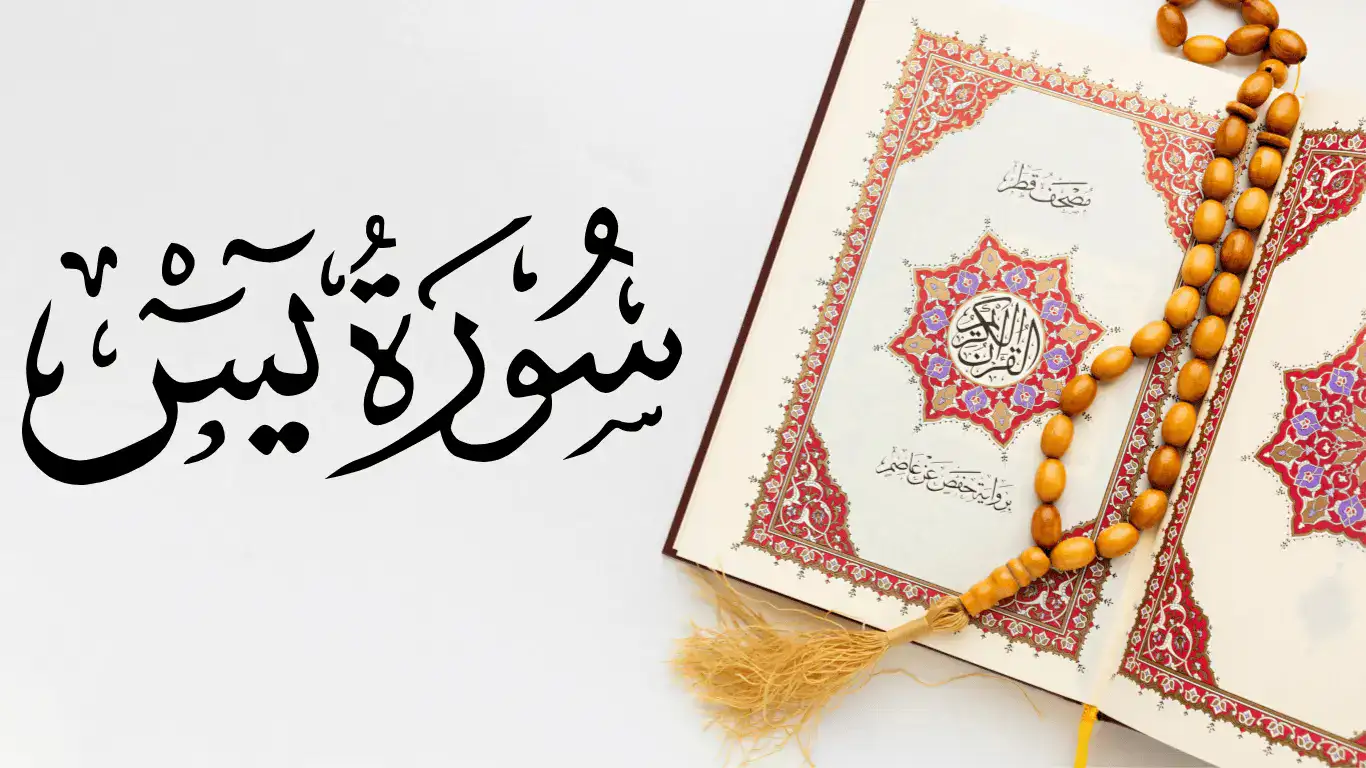 سُورَةُ يسٓ
مُصْحَف قَطَر
القرآن الكريم
بِرِوَايَة حَفْص عَنْ عَاصِم